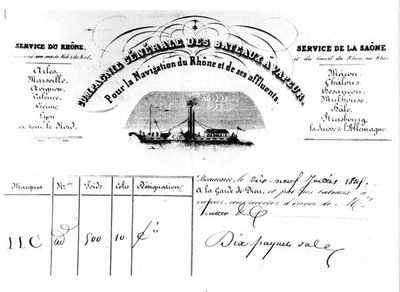 COMPAGNIE GÉNÉRALE DES BATEAUX À VAPEUR
Pour la Navigation du Rhône et de ses affluents.
SERVICE DU RHÔNE.
Arles,
Marseille,
Avignon,
Valence,
Vienne
Lyon
et tout le Nord.
SERVICE DE LA SAÔNE
et du Canal du Rhône au Rhin.
Mâcon,
Châlons,
Besançon,
Mulhouse,
Bâle,
Strasbourg,
la Suisse & l'Allemagne
Beaucaire, le dix neuf Juillet
A la Garde de Dieu, et par nos bateaux à
vapeur, vous recevrez d'envoi de
Marques
N.os
Poids
Colis
Désignation
500
10
Dix paquets